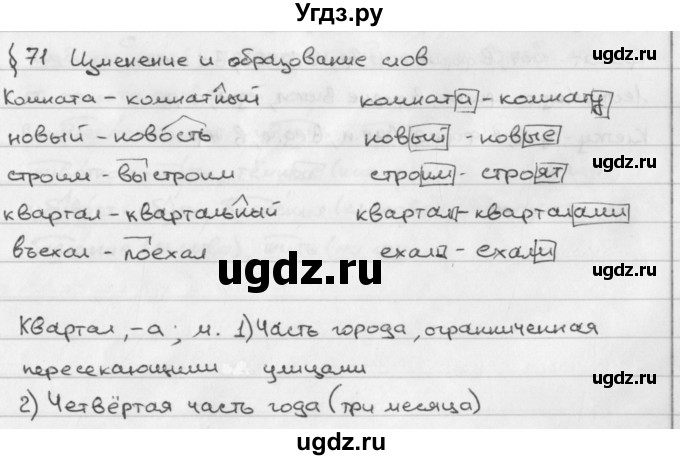 Угдз.ру
ugdz.ru
§ 71 Изменение и образование слов
ugdz.ru
Комната - комнатный комната - комнату
ugdz.ru
новый - новость новый - новые
строим - выстроим строим - строят
ugdz.ru
квартал - квартальный квартал - кварталами
въехал - поехал ехал - ехали
ugdz.ru
ugdz.ru
Квартал, -а; м. 1) Часть города, ограниченная
пересекающими улицами
ugdz.ru
2) Четвёртая часть года (три месяца)
ugdz.ru
ugdz.ru